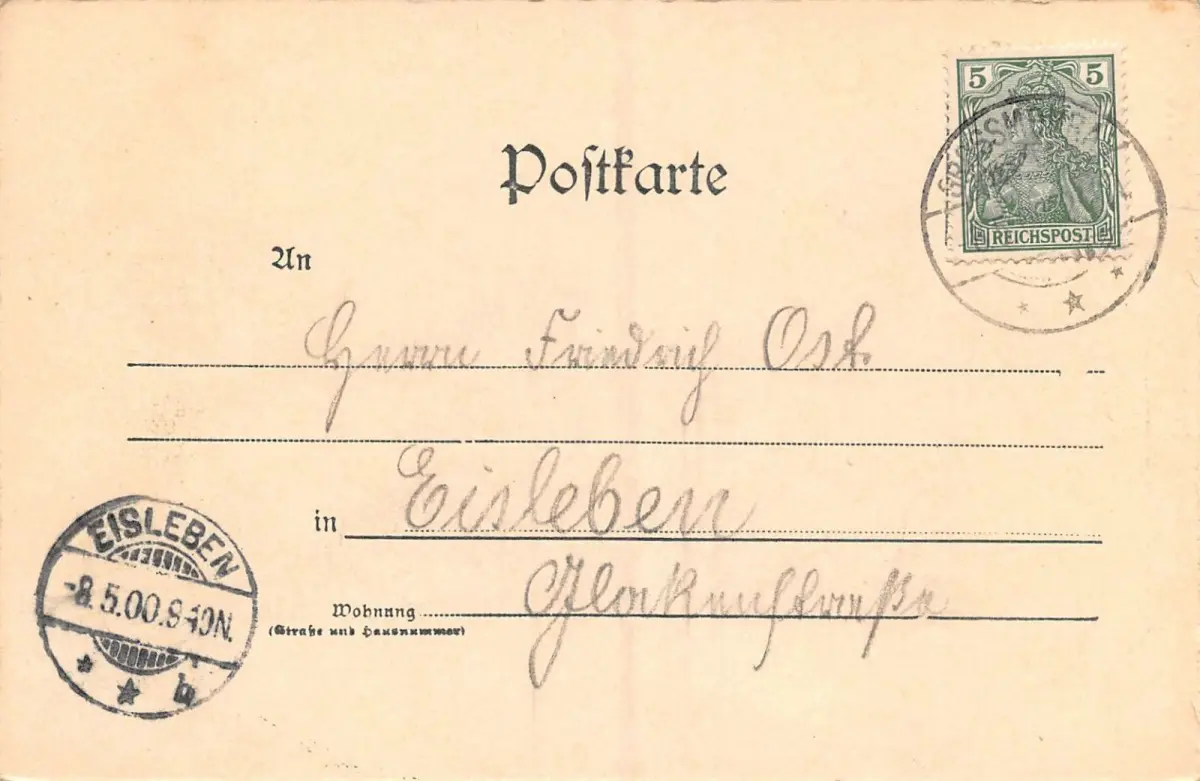 5 5
REICHSPOST
Postkarte
An
Herrn Friedrich Ost.
in Eisleben
Wohnung Glockenstraße
(Straße und Hausnummer)
EISLEBEN
-8.5.00.8-9N.
* * b